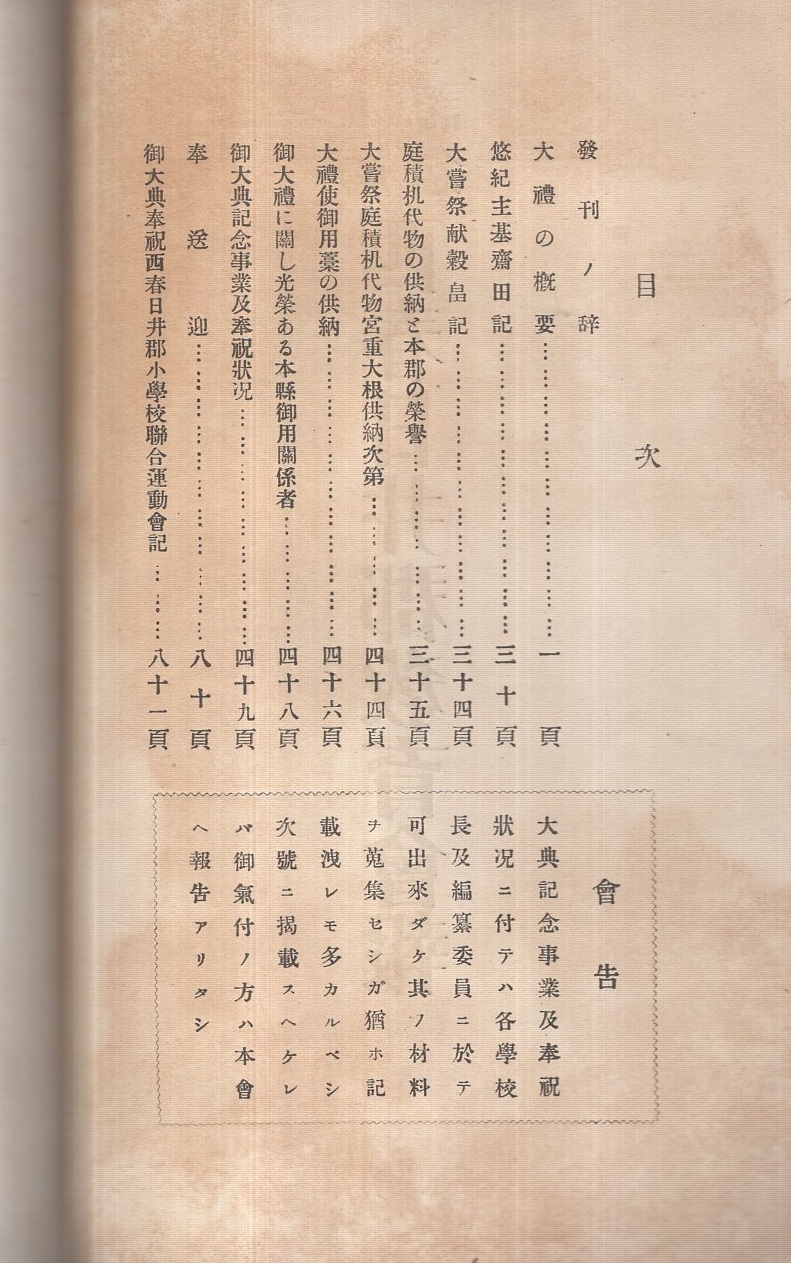 目次
發刊ノ辞
大禮の概要……………………………一頁
悠紀主基齋田記……………………………三十頁
大嘗祭献穀畠記……………………………三十四頁
庭積机代物の供納と本郡の榮譽………………三十五頁
大嘗祭庭積机代物宮重大根供納次第……………四十四頁
大禮使御用藁の供納……………………………四十六頁
御大禮に關し光榮ある本縣御用關係者…………四十八頁
御大典記念事業及奉祝狀况……………………四十九頁
奉送迎……………………………八十頁
御大典奉祝西春日井郡小學校聯合運動會記…………八十一頁
會告
大典記念事業及奉祝
狀况ニ付テハ各學校
長及編纂委員ニ於テ
可出來ダケ其ノ材料
ヲ蒐集セシガ猶ホ記
載洩レモ多カルベシ
次號ニ揭載スヘケレ
バ御氣付ノ方ハ本會
ヘ報告アリタシ